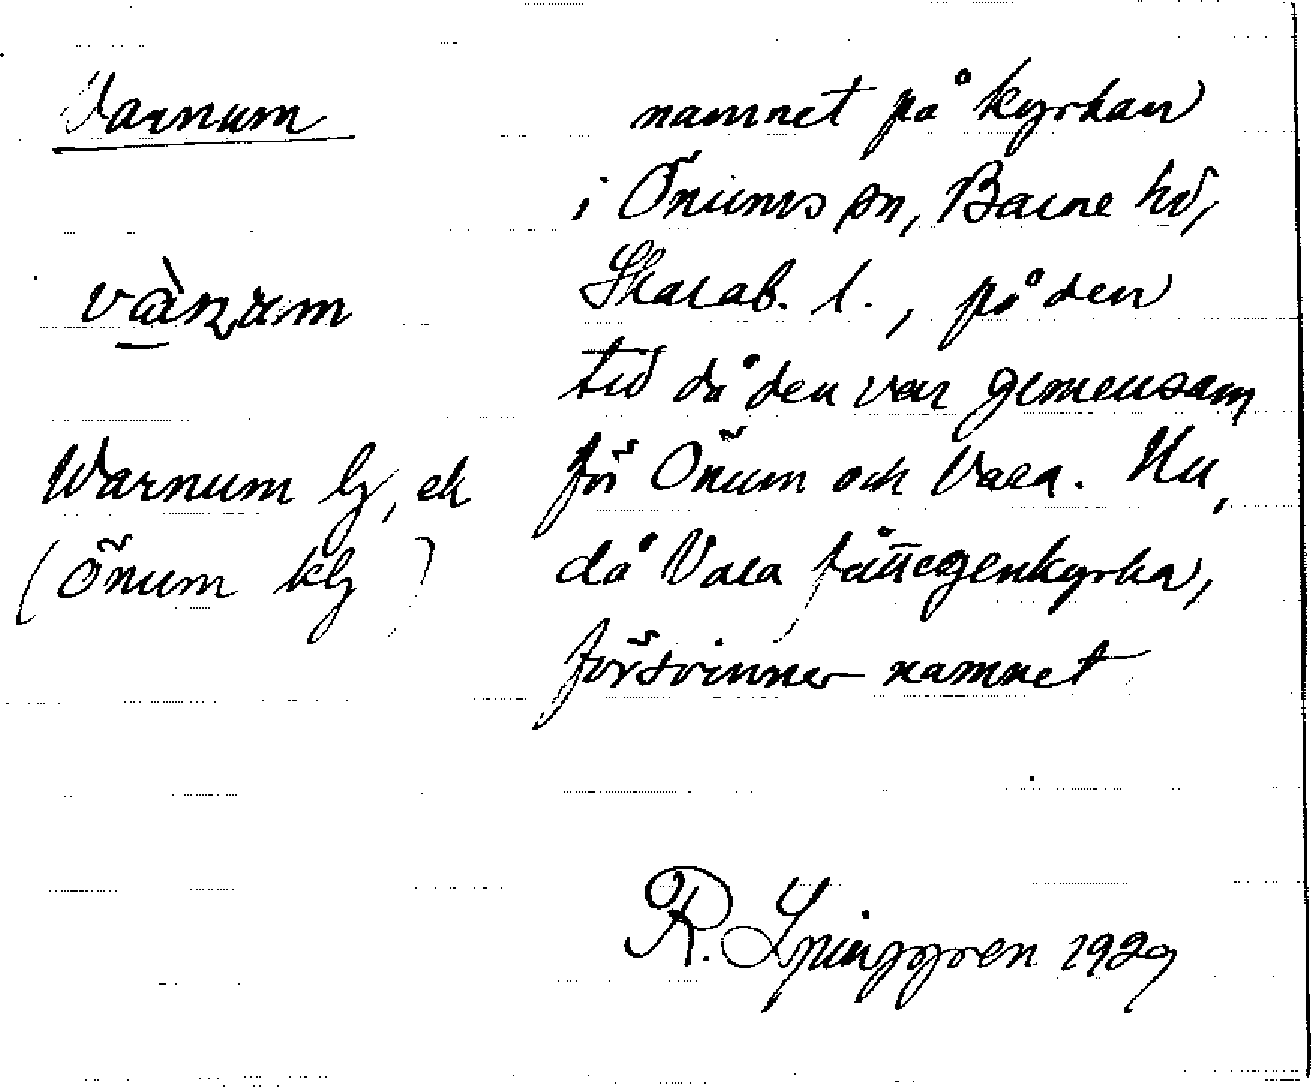 Varnum
vànum
Warnum lg, ek
(Önum klg )
namnet på kyrkan
i Önums sn, Barne hd,
Skarab. l., på den
tid då den var gemensam
för Önum och Vara. Nu,
då Vara fått egenkyrka,
försvinner namnet
R. Ljunggren 1929